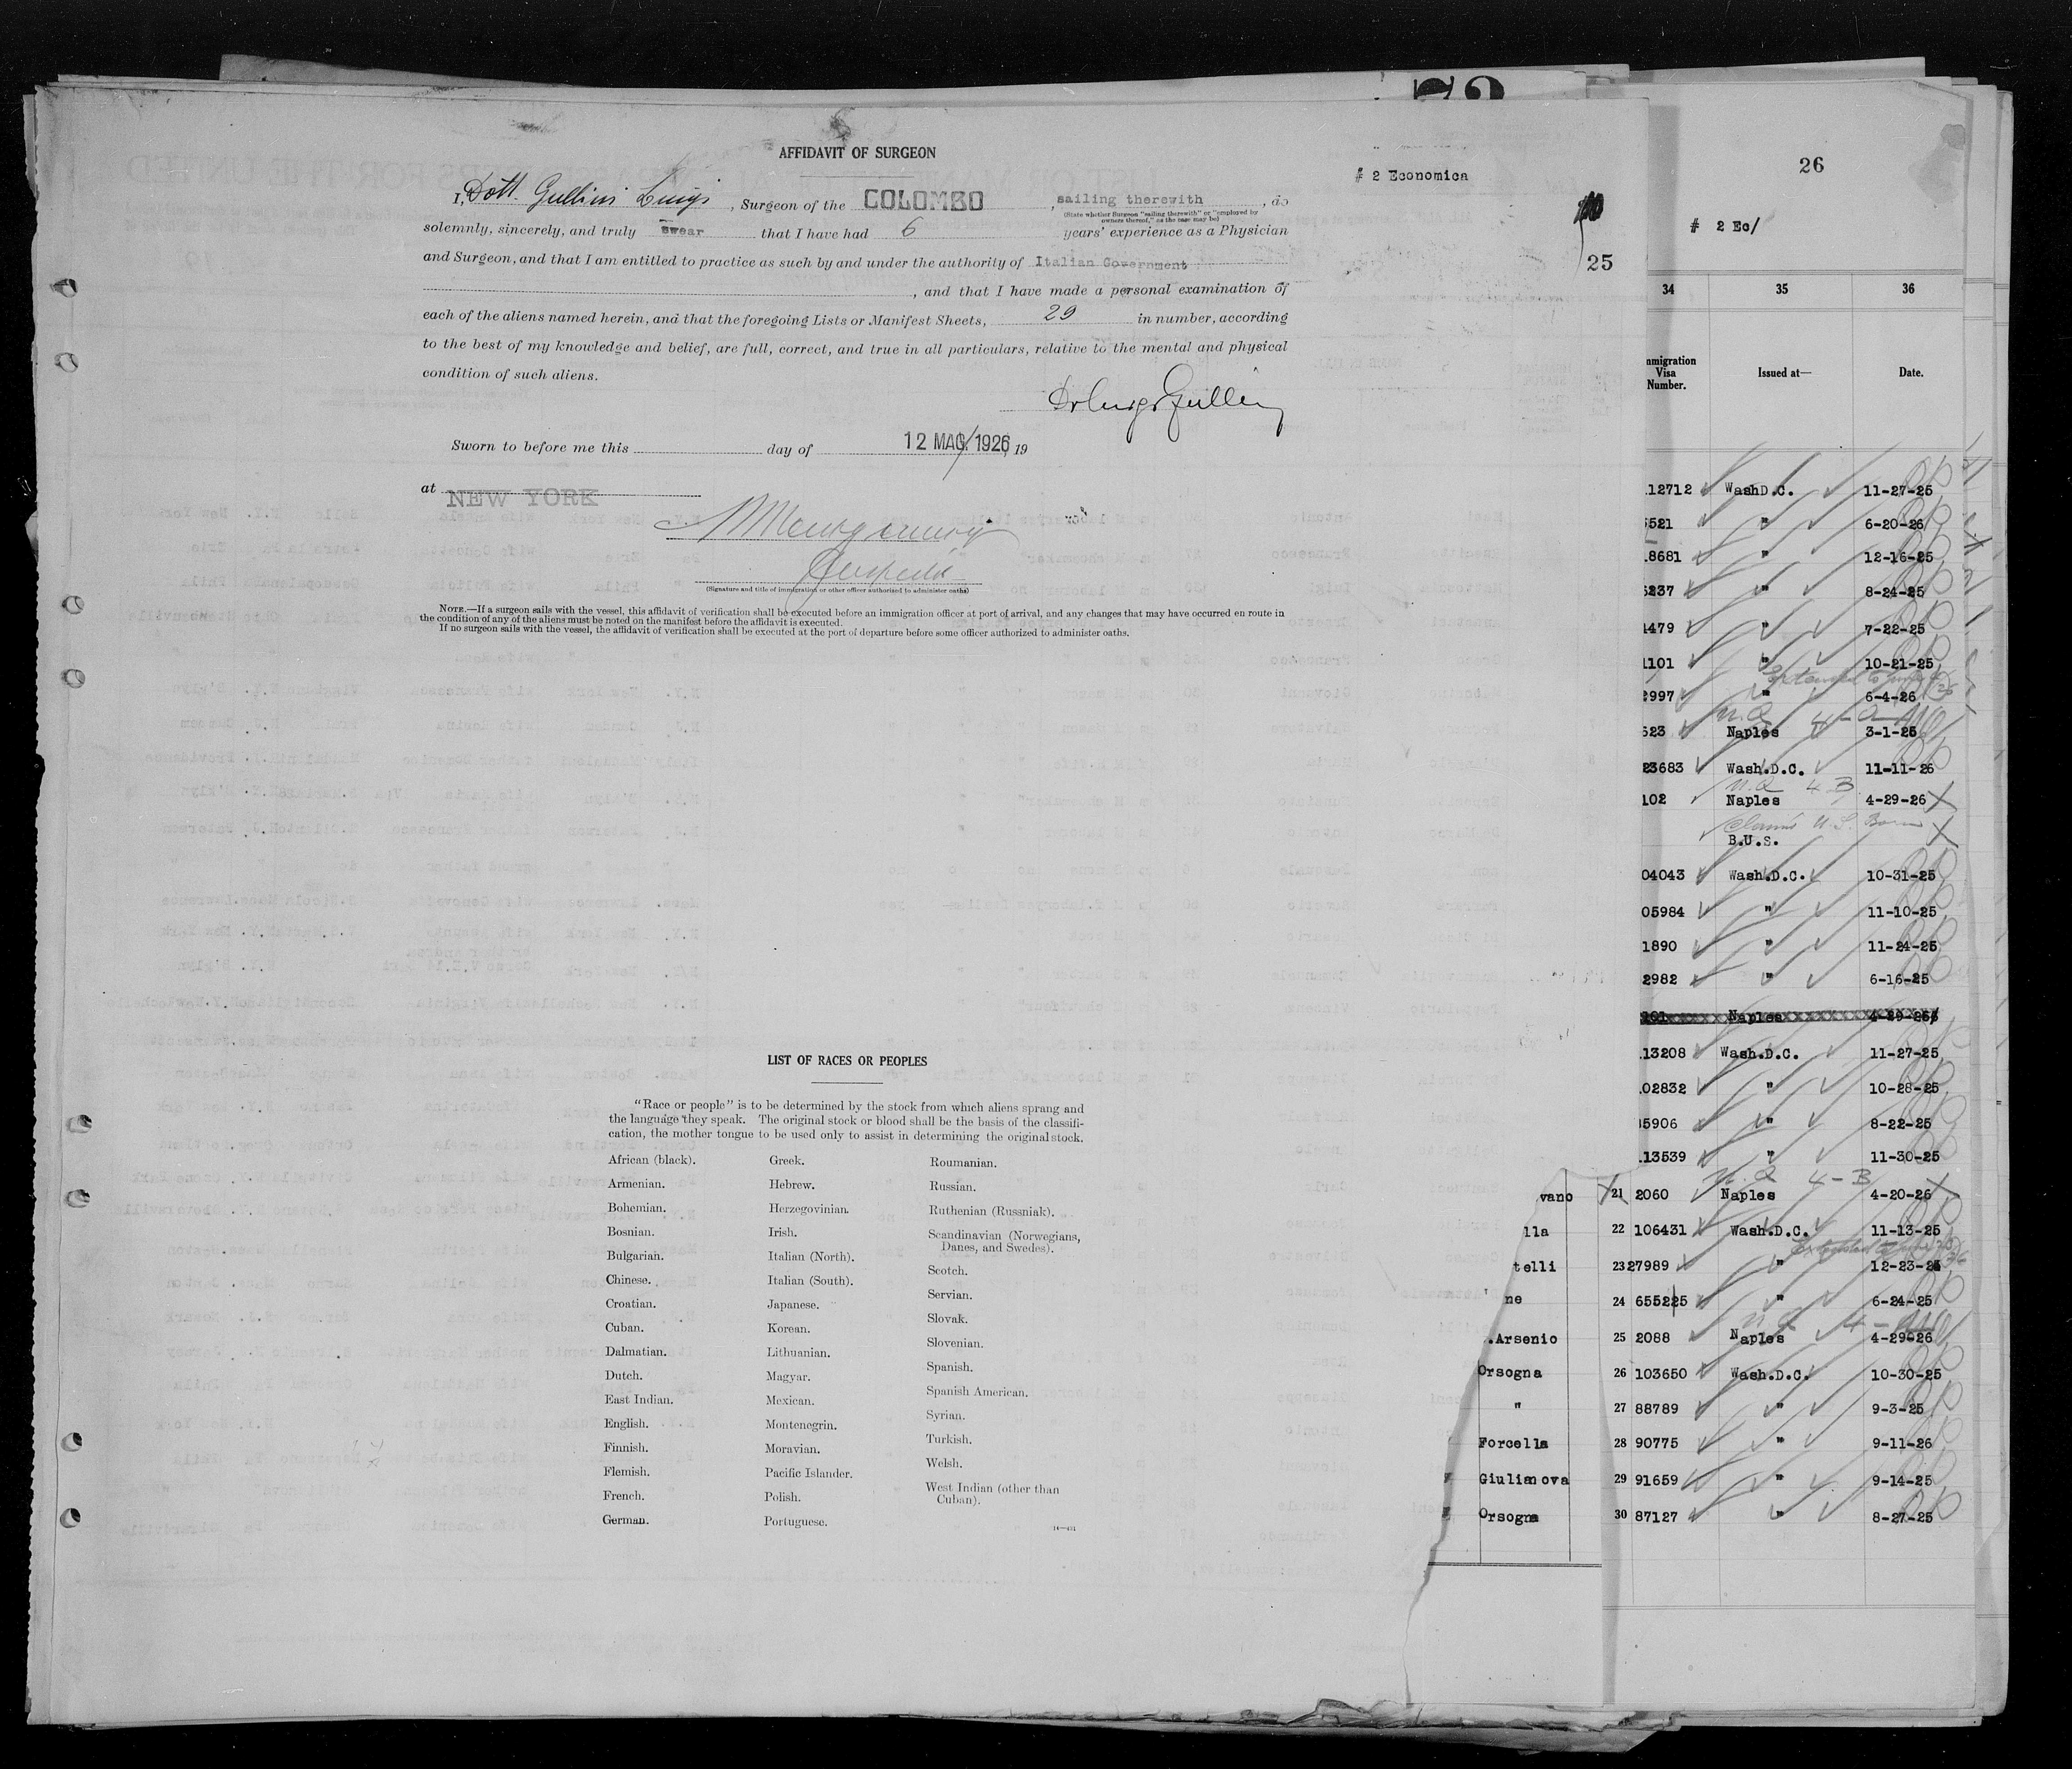 AFFIDAVIT OF SURGEON
I, Dott. Gullini Luigi, Surgeon of the COLOMBO, sailing therewith, do
(State whether Surgeon "sailing therewith" or "employed by
owners thereof," as the case may be)
solemnly, sincerely, and truly swear that I have had 6 years' experience as a Physician
and Surgeon, and that I am entitled to practice as such by and under the authority of Italian Government
, and that I have made a personal examination of
each of the aliens named herein, and that the foregoing Lists or Manifest Sheets, 29 in number, according
to the best of my knowledge and belief, are full, correct, and true in all particulars, relative to the mental and physical
condition of such aliens.
Dr Luigi Gullini
Sworn to before me this day of 12 MAG. 1926, 19
at NEW YORK
(Signature and title of immigration or other officer authorized to administer oaths)
NOTE.—If a surgeon sails with the vessel, this affidavit of verification shall be executed before an immigration officer at port of arrival, and any changes that may have occurred en route in
the condition of any of the aliens must be noted on the manifest before the affidavit is executed.
If no surgeon sails with the vessel, the affidavit of verification shall be executed at the port of departure before some officer authorized to administer oaths.
LIST OF RACES OR PEOPLES
"Race or people" is to be determined by the stock from which aliens sprang and
the language they speak. The original stock or blood shall be the basis of the classifi-
cation, the mother tongue to be used only to assist in determining the original stock.
African (black).
Armenian.
Bohemian.
Bosnian.
Bulgarian.
Chinese.
Croatian.
Cuban.
Dalmatian.
Dutch.
East Indian.
English.
Finnish.
Flemish.
French.
German.
Greek.
Hebrew.
Herzegovinian.
Irish.
Italian (North).
Italian (South).
Japanese.
Korean.
Lithuanian.
Magyar.
Mexican.
Montenegrin.
Moravian.
Pacific Islander.
Polish.
Portuguese.
Roumanian.
Russian.
Ruthenian (Russniak).
Scandinavian (Norwegians,
Danes, and Swedes).
Scotch.
Servian.
Slovak.
Slovenian.
Spanish.
Spanish American.
Syrian.
Turkish.
Welsh.
West Indian (other than
Cuban).
# 2 Economica
25
26
# 2 Ec/
34 35 36
mmigration
Visa
Number.
Issued at—
Date.
12712 WashD.C. 11-27-25
521 " 6-20-26
8681 " 12-16-25
6237 " 8-24-25
4479 " 7-22-25
1101 " 10-21-25
2997 " 6-4-26
N.Q
523 Naples 3-1-26
23683 Wash.D.C. 11-11-26
N.Q 4-B
102 Naples 4-29-26
Claims U.S. Born
B.U.S.
04043 Wash.D.C. 10-31-25
05984 " 11-10-25
1890 " 11-24-25
2982 " 6-16-25
101 Naples 4-29-26
13208 Wash.D.C. 11-27-25
02832 " 10-28-25
5906 " 8-22-25
13539 " 11-30-25
N.Q 4-B
vano 21 2060 Naples 4-20-26
lla 22 106431 Wash.D.C. 11-13-25
telli 23 27989 " 12-23-25
ne 24 655225 " 6-24-25
.Arsenio 25 2088 Naples 4-29-26
Orsogna 26 103650 Wash.D.C. 10-30-25
" 27 88789 " 9-3-25
Forcella 28 90775 " 9-11-26
Giulianova 29 91659 " 9-14-25
Orsogna 30 87127 " 8-27-25